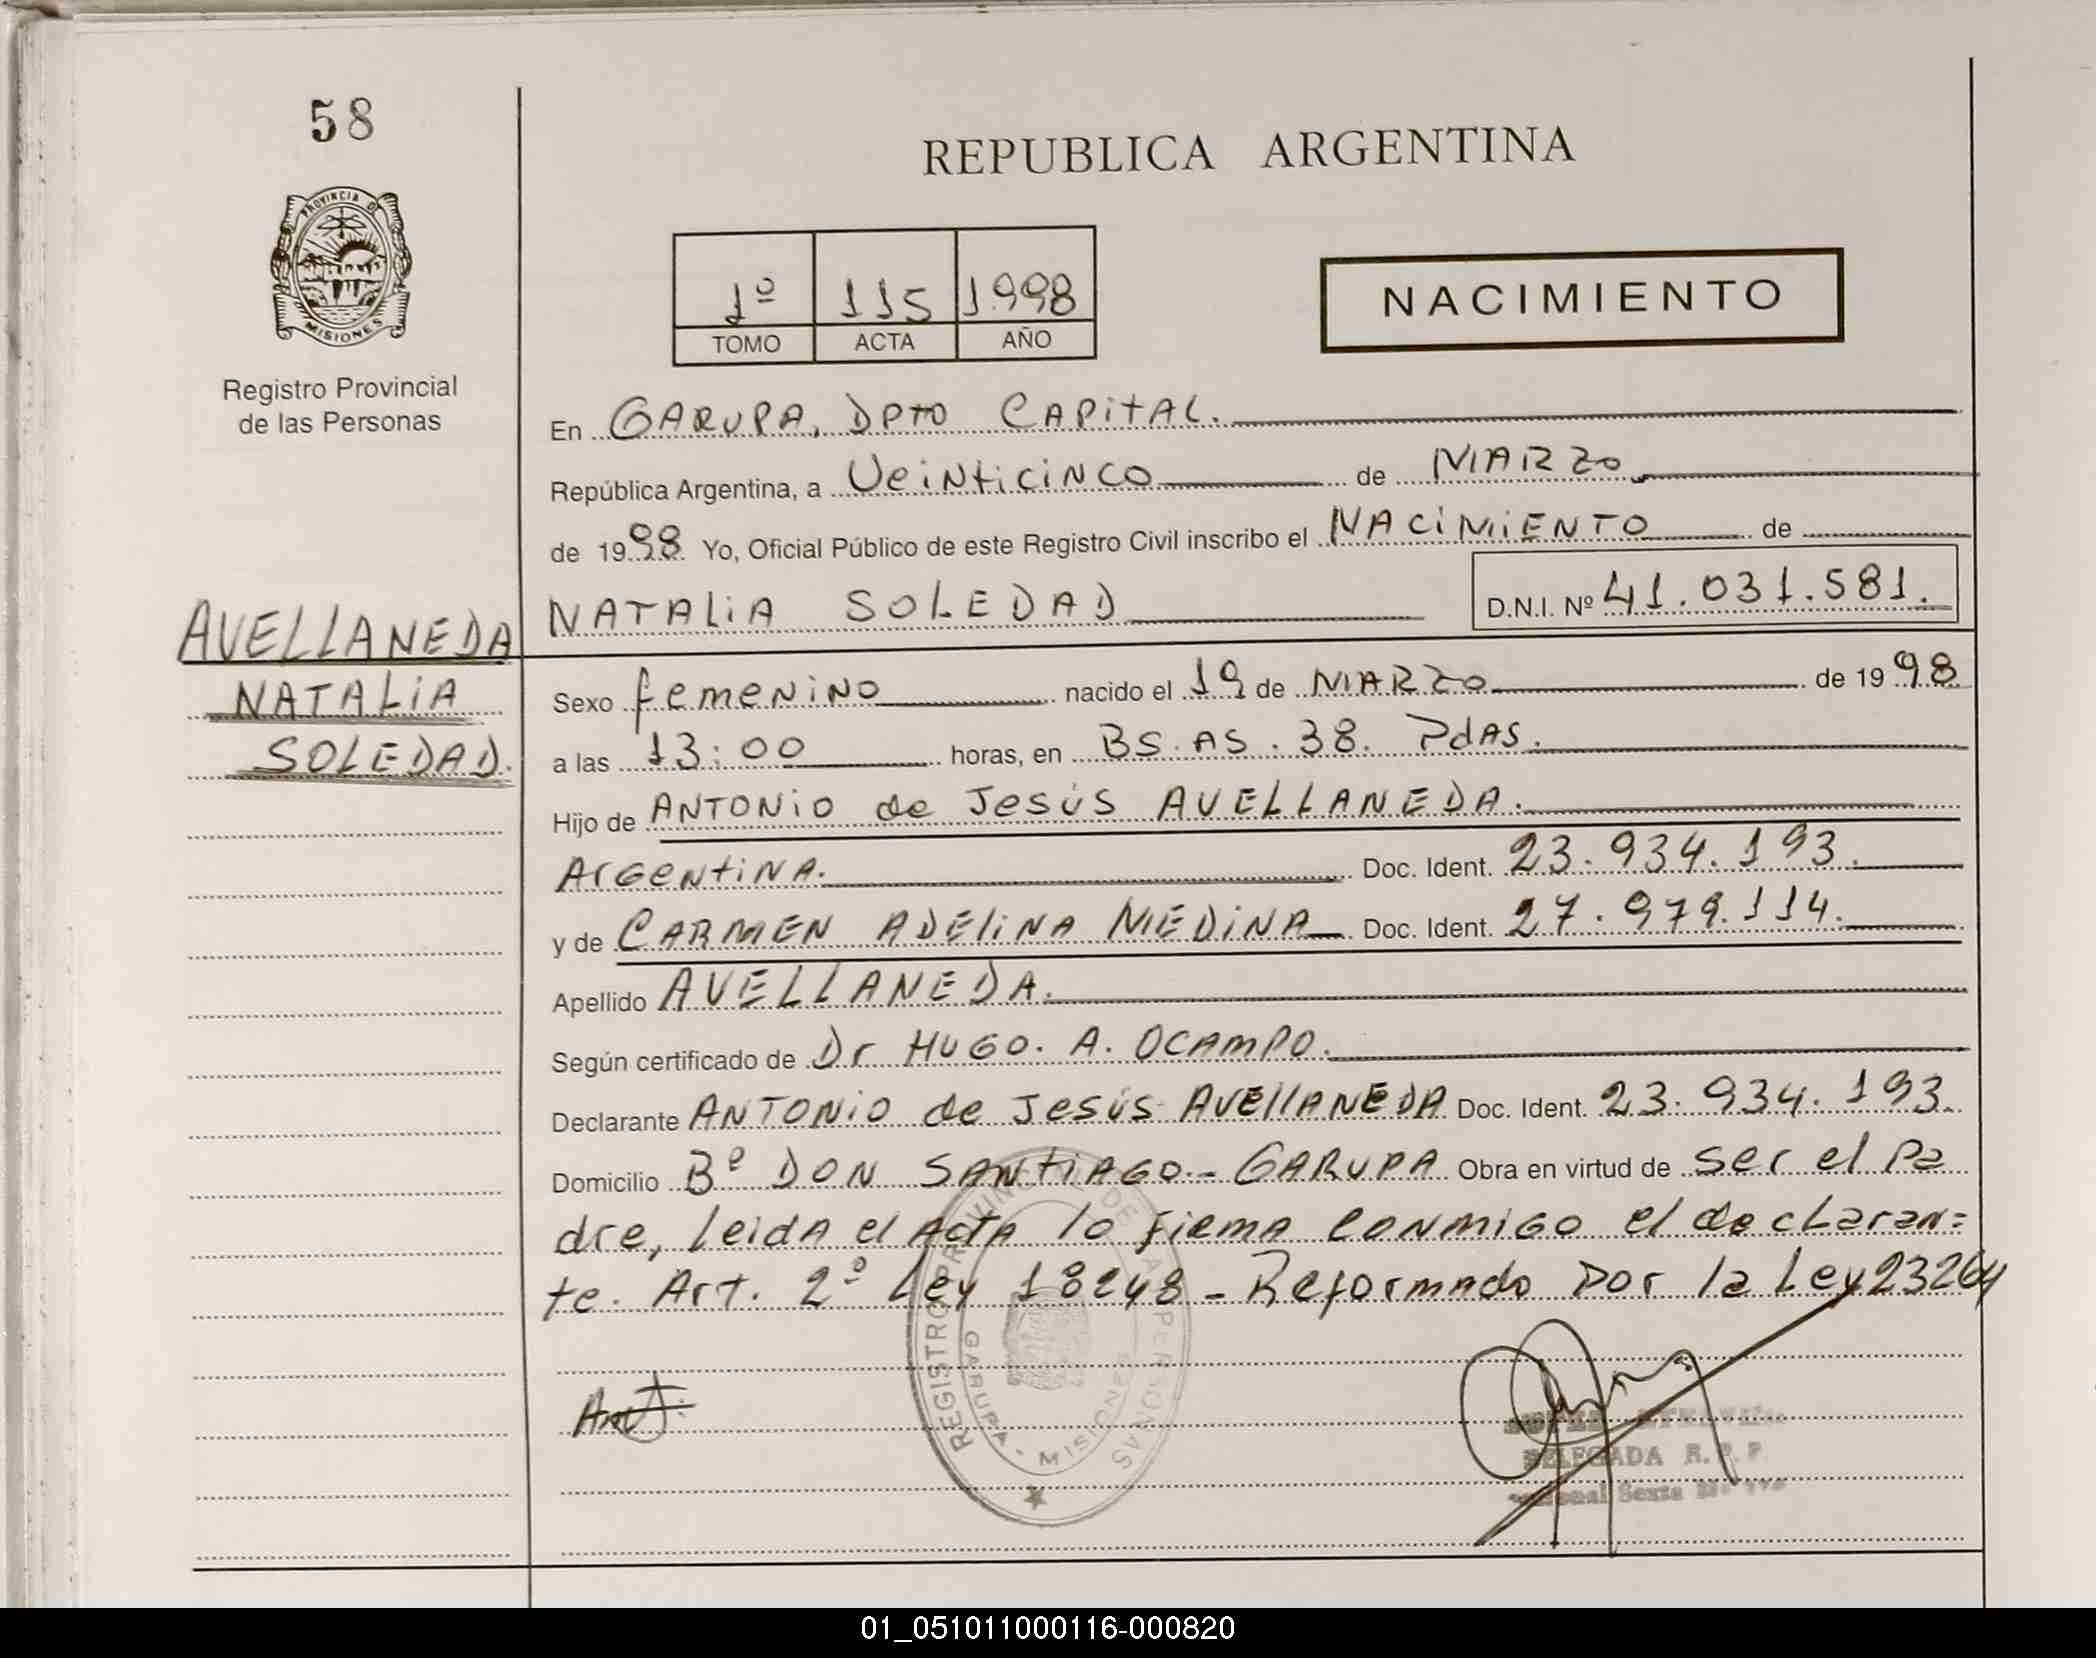 58
REPUBLICA ARGENTINA
PROVINCIA DE
MISIONES
1º 115 1998
TOMO ACTA AÑO
NACIMIENTO
Registro Provincial
de las Personas
En GARUPA, DPTO CAPITAL.
República Argentina, a VEINTICINCO de MARZO
de 1998 Yo, Oficial Público de este Registro Civil inscribo el NACIMIENTO de
NATALIA SOLEDAD D.N.I. Nº 41.031.581.
AVELLANEDA
NATALIA
SOLEDAD.
Sexo femenino nacido el 19 de MARZO de 1998
a las 13:00 horas, en BS.AS. 38. PdAS.
Hijo de ANTONIO de Jesús AVELLANEDA.
ArGentiNA. Doc. Ident. 23.934.193.
y de CARMEN ADELINA MEDINA Doc. Ident. 27.979.114.
Apellido AVELLANEDA.
Según certificado de Dr HUGO. A. OCAMPO.
Declarante ANTONIO de Jesús AVELLANEDA Doc. Ident. 23.934.193.
Domicilio Bº DON SANTIAGO.- GARUPA Obra en virtud de ser el Pa
dre, leida el Acta lo firma conmigo el declaran=
te. Art. 2º Ley 18248 - Reformado por la Ley 23264
REGISTRO PROVINCIAL DE LAS PERSONAS
GARUPA - MISIONES
DELEGADA R.P.P.
01_051011000116-000820